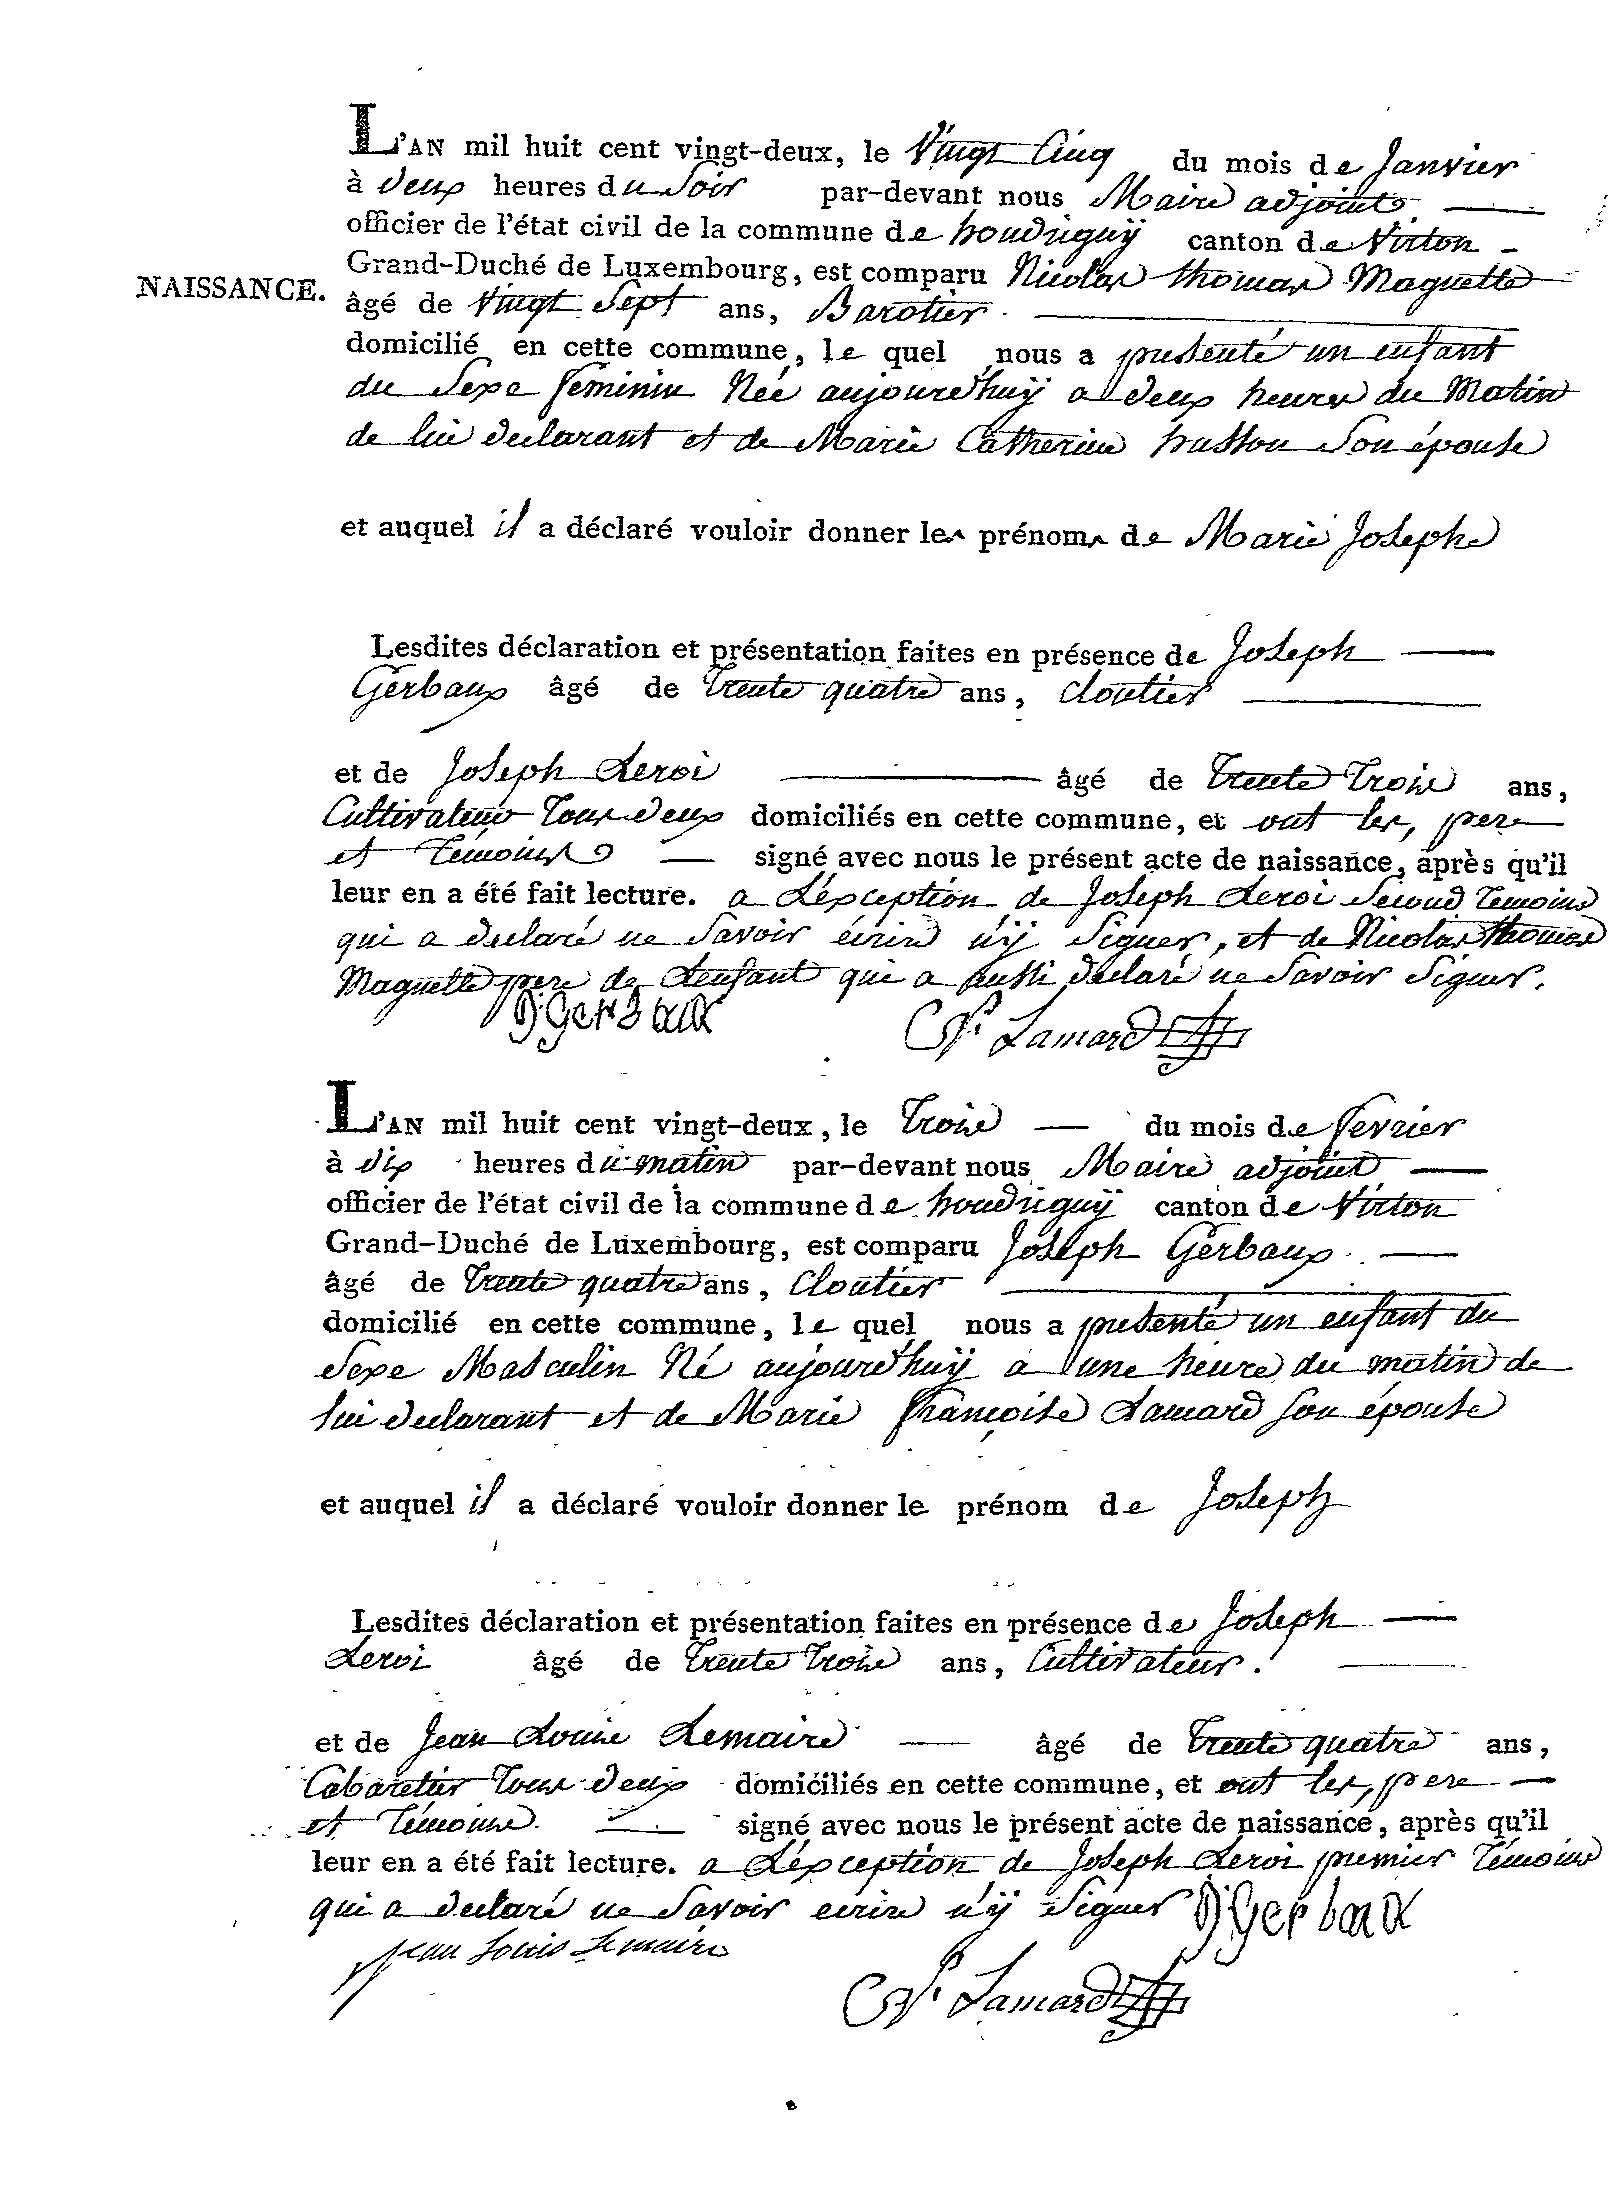 L'AN mil huit cent vingt-deux, le Vingt Cinq du mois de Janvier
à deux heures du Soir par-devant nous Maire adjoint
officier de l'état civil de la commune de houdrignÿ canton de Virton
Grand-Duché de Luxembourg, est comparu Nicolas thomas Maguette
NAISSANCE.
âgé de Vingt Sept ans, Barotier
domicilié en cette commune, le quel nous a presenté un enfant
du Sexe feminin Née aujourd'huÿ a deux heures du Matin
de lui declarant et de Marie Catherine husson Son épouse
et auquel il a déclaré vouloir donner les prénoms de Marie Josephe
Lesdites déclaration et présentation faites en présence de Joseph
Gerbaux âgé de Trente quatre ans, Cloutier
et de Joseph Leroi âgé de Trente Trois ans,
Cultivateur Tous deux domiciliés en cette commune, et ont les, pere
et Temoins signé avec nous le présent acte de naissance, après qu'il
leur en a été fait lecture. a L'éxception de Joseph Leroi Second Temoins
qui a declaré ne Savoir écrire n'ÿ Signer, et de Nicolas thomas
Maguette pere de Lenfant qui a aussi declaré ne Savoir Signer.
J Gerbaux C P. Lamard
L'AN mil huit cent vingt-deux, le Trois du mois de fevrier
à dix heures du matin par-devant nous Maire adjoint
officier de l'état civil de la commune de houdrignÿ canton de Virton
Grand-Duché de Luxembourg, est comparu Joseph Gerbaux
âgé de Trente quatre ans, Cloutier
domicilié en cette commune, le quel nous a presenté un enfant du
Sexe Masculin Né aujourd'huÿ a une heure du matin de
lui declarant et de Marie françoise Lamard son épouse
et auquel il a déclaré vouloir donner le prénom de Joseph
Lesdites déclaration et présentation faites en présence de Joseph
Leroi âgé de Trente Trois ans, Cultivateur.
et de Jean Louis Lemaire âgé de Trente quatre ans,
Cabaretier Tous deux domiciliés en cette commune, et ont les, pere
et Témoins signé avec nous le présent acte de naissance, après qu'il
leur en a été fait lecture. a L'éxception de Joseph Leroi premier Témoins
qui a declaré ne Savoir ecrire n'ÿ Signer J Gerbaux
jean Louis Lemaire
C P. Lamard